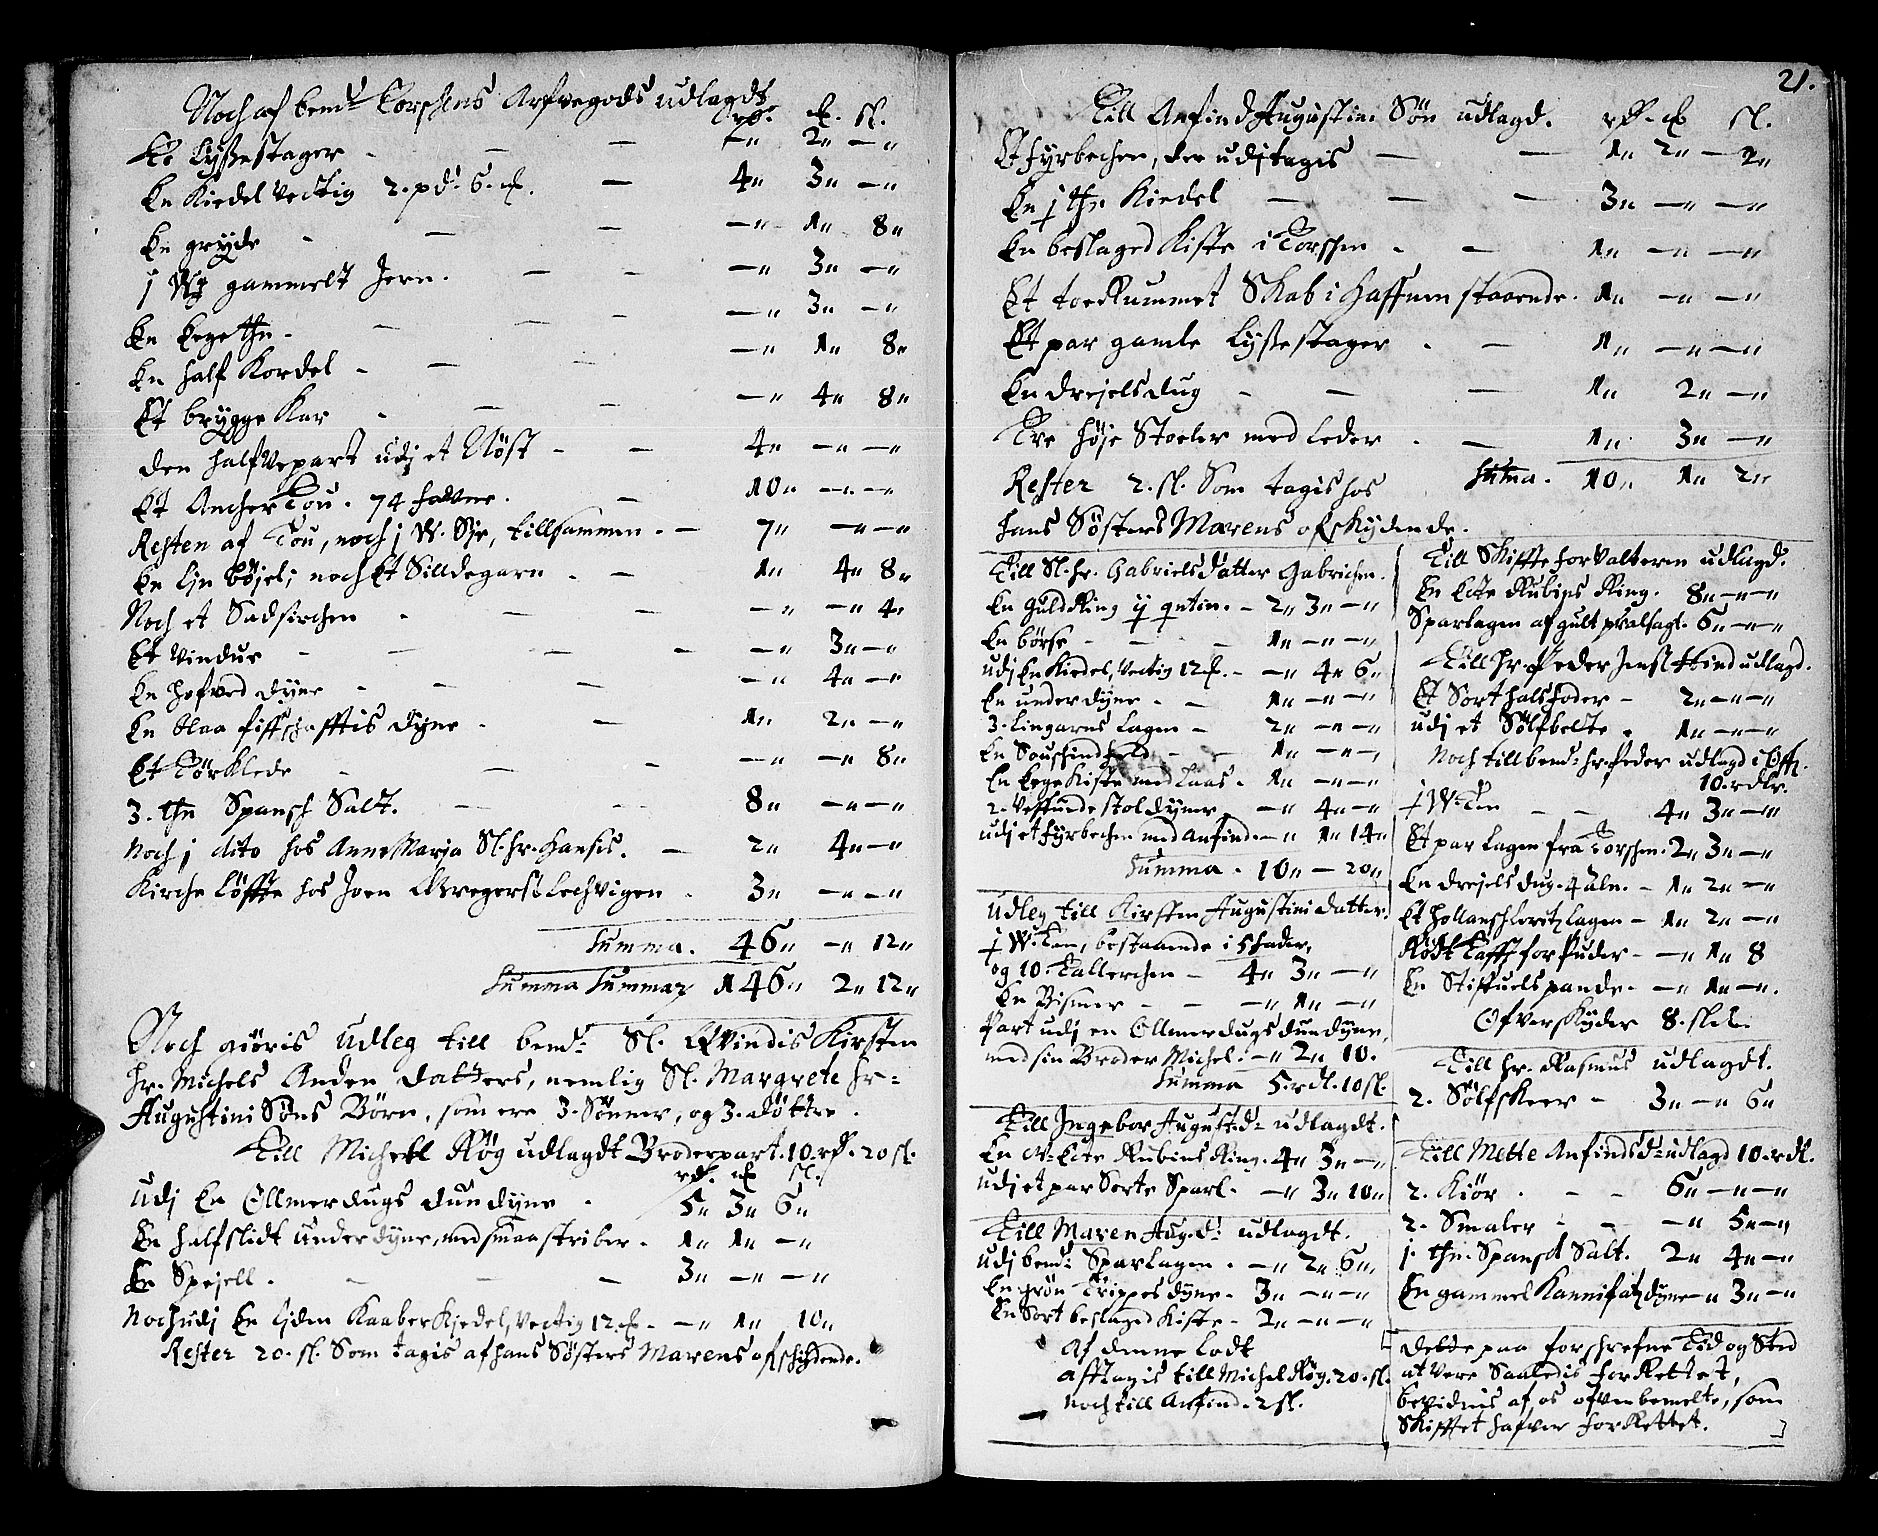 Noch af bemd Torschens Arfvegods udlagdt
rd. mk. sl.
To lyssestager - - - -" 2" -"
En Kiedel Vectig 2. pd. 6. mk. - 4" 3" -"
En gryde - - - -" 1" 8"
j W gammelt Jern. - - -" 3" -"
En Ege thn. - - - -" 3" -"
En half Kordel - - -" 1" 8"
Et brygge Kar - - - -" 4" 8"
Den halfvepart udj et Nøst - - 4" -" -"
Et Ancher Tou. 74 fafvne. - 10" -" -"
Resten af Tou, noch j W. tillsammen. - 7" -" -"
En noch Et Silldegarn. - 1" 4" 8"
Noch et - - -" -" 4"
Et Vindue - - - - -" 3" -"
En hofved dyne - - - -" 4" -"
En blaa dyne - - 1" 2" -"
Et Tørklede - - - -" -" 8"
3. thn Spansk Salt. - - 8" -" -"
Noch j dito hos Anne Marja Sl. hr. Hansis. - 2" 4" -"
Kirche Løffte hos Joen Gregers Lechvigen - 3" -" -"
Summa. 46" -" 12"
Summa Summar 146" 2" 12"
Noch giøris Udleg till bemd: Sl. Qvindis Kirsten
Hr. Michels Anden Datters, nemlig Sl. Margrete hr=
Augustini Søns Børn, som ere 3. Sønner, og 3. døttre.
Till Michell Røg udlagdt Broderpart. 10. rd. 20 sl.
rd. mk sl.
Udj En Ollmerdugs dundyne - 5" 3" 6"
En halfslidt Underdyne, med smaa striber. 1" 1" -"
En Spejell. - - - 3" -" -"
Noch udj En liden Kaaber Kjedel, Vectig 12. mk. -" 1" 10"
Rester 20. sl. Som tagis af hans Søsters Marens ofschydende.
21.
Till Anfind Augustini Søn udlagd. rd. mk sl.
Et fyrbechen, der udj tagis - - 1" 2" - 2"
En j thn Kiedel - - - 3" -" -"
En beslaged Kiste i Torschen - - 1" -" -"
Et toe Rummet Skab i Haffnen staaende. 1" -" -"
Et par gamle Lyssestager - - 1" -" -"
En drejels dug - - - 1" 2" -"
Tre høje Stoeler med leder - - 1" 3" -"
Rester 2. sl. Som tagis hos Suma. 10" 1" 2"
hans Søsters Marens ofskydende.
Till Sl. hr. Gabriels datter Gabrichen.
En guld Ring ij qntin. - 2" 3" -"
En børse - - - 1" -" -"
udj En Kiedel, Vectig 12 mk. - -" 4" 6"
En underdyne - - 1" -" -"
3. Lingarns Lagen - 2" -" -"
En - - 1" -" -"
En Ege Kiste med Laas. 1" -" -"
2. stoldyner - -" 4" -"
udj et fyrbechen med Anfind. -" 1" 14"
Summa. 10" - 20"
Udleg till Kirsten Augustini datter.
j W. Ten, bestaaende i 5 fader,
og 10. Tallerchen - 4" 3" -"
En Bismer - - -" 1" -"
Part udj en Ollmerdugs dundyne,
med sin Broder Michel: -" 2" 10.
Summa 5. rdl. 10 sl.
Till Ingebor Augustd: udlagdt.
En Ecte Rubins Ring. 4" 3" -"
udj et par Sorte Sparl. -" 3" 10"
Till Maren Aug. D: udlagdt.
udj bemd: Sparlagen. -" 2" 6"
En grøn Trippes dyne. 3" -" -"
En Sort beslaged Kiste - 2" -" -"
Af denne Lodt
afftagis till Michel Røg. 20. sl.
noch till Anfind. 2 sl.
Till Skiffteforvalteren udlagd.
En Ecte Rubins Ring. 8" -" -"
Sparlagen af gult 6" -" -"
Till Hr. Peder Jenss Hind udlagd.
Et Sort halsfoder - 2" -" -"
udj et Sølfbelte. 1" -" -"
Noch till bemd: hr. Peder udlagd i
10. rdlr.
j W. Ten - - 4" 3" -"
Et par Lagen fra Torschen. 2" 3" -"
En drejels dug. 4 aln. - 1" 2" -"
Et Hollansch Lagen - 1" 2" -"
Rødt Tafft for Puder - -" 1" 8
En Stiffuelspande. -" 1" -".
Ofverskyder 8. sk
Till Hr. Rasmus udlagdt.
2. Sølfskeer - 3" -" 6"
Till Mette Anfindsd: udlagd 10. rdl.
2. Kiør - - - 6" -" -"
2. Smaler - - -" 5" -"
j. thn. Spansk Salt. 2" 4" -"
En gammel dyne -" 3" -"
Dette paa forschrefne Tid og Sted
at vere Saaledis forRettet,
bevidnis af os ofvenbemelte, som
Skifftet hafver forRettet.